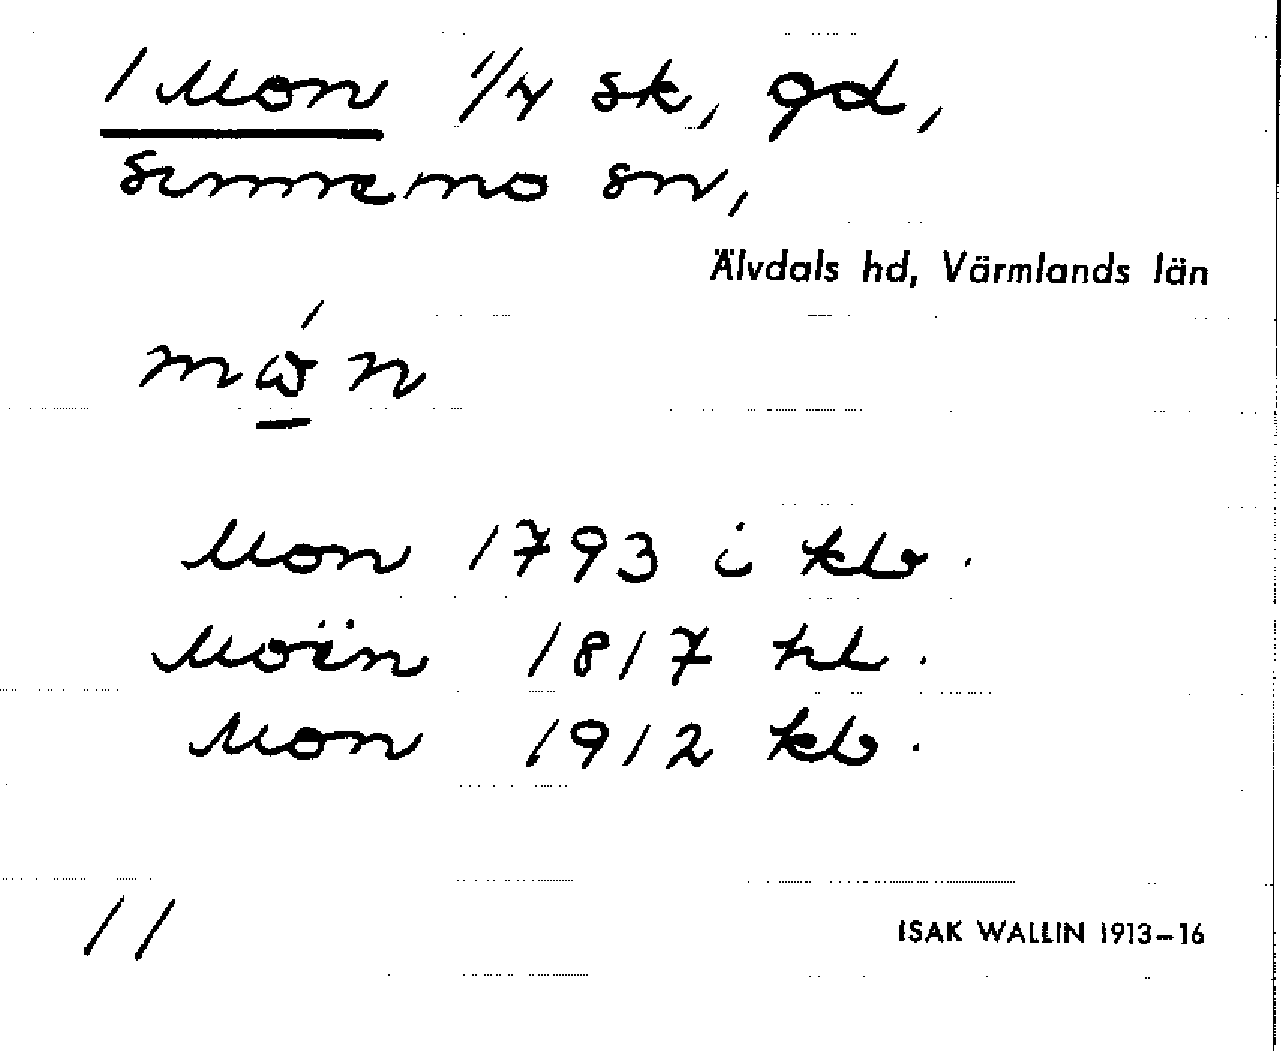 1 Mon 1/4 sk, gd,
Sunnemo sn,
Älvdals hd, Värmlands län
Mon 1793 i kb.
Moën 1817 hl.
Mon 1912 kb.
11
ISAK WALLIN 1913–16